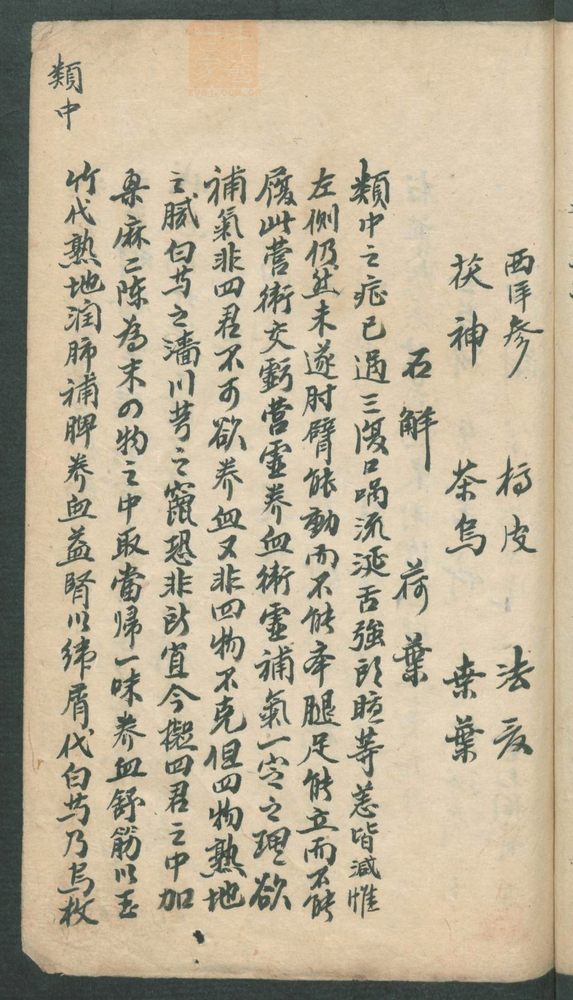 西洋參 橘皮 法夏
茯神 茶烏 桑葉
石斛 荷葉
類中之症已過三候口喎流涎舌強頭眩等恙皆減惟
左側仍然未遂肘臂能動而不能牽腿足能立而不能
履此營衛交虧營虛养血衛虛補氣一定之理欲
補氣非四君不可欲养血又非四物不克但四物熟地
之膩白芍之濇川芎之竄恐非所宜今擬四君之中加
桑麻二陳為末四物之中取當歸一味养血舒筋以玉
竹代熟地润肺補脾养血益腎以績屑代白芍乃烏枚
類中